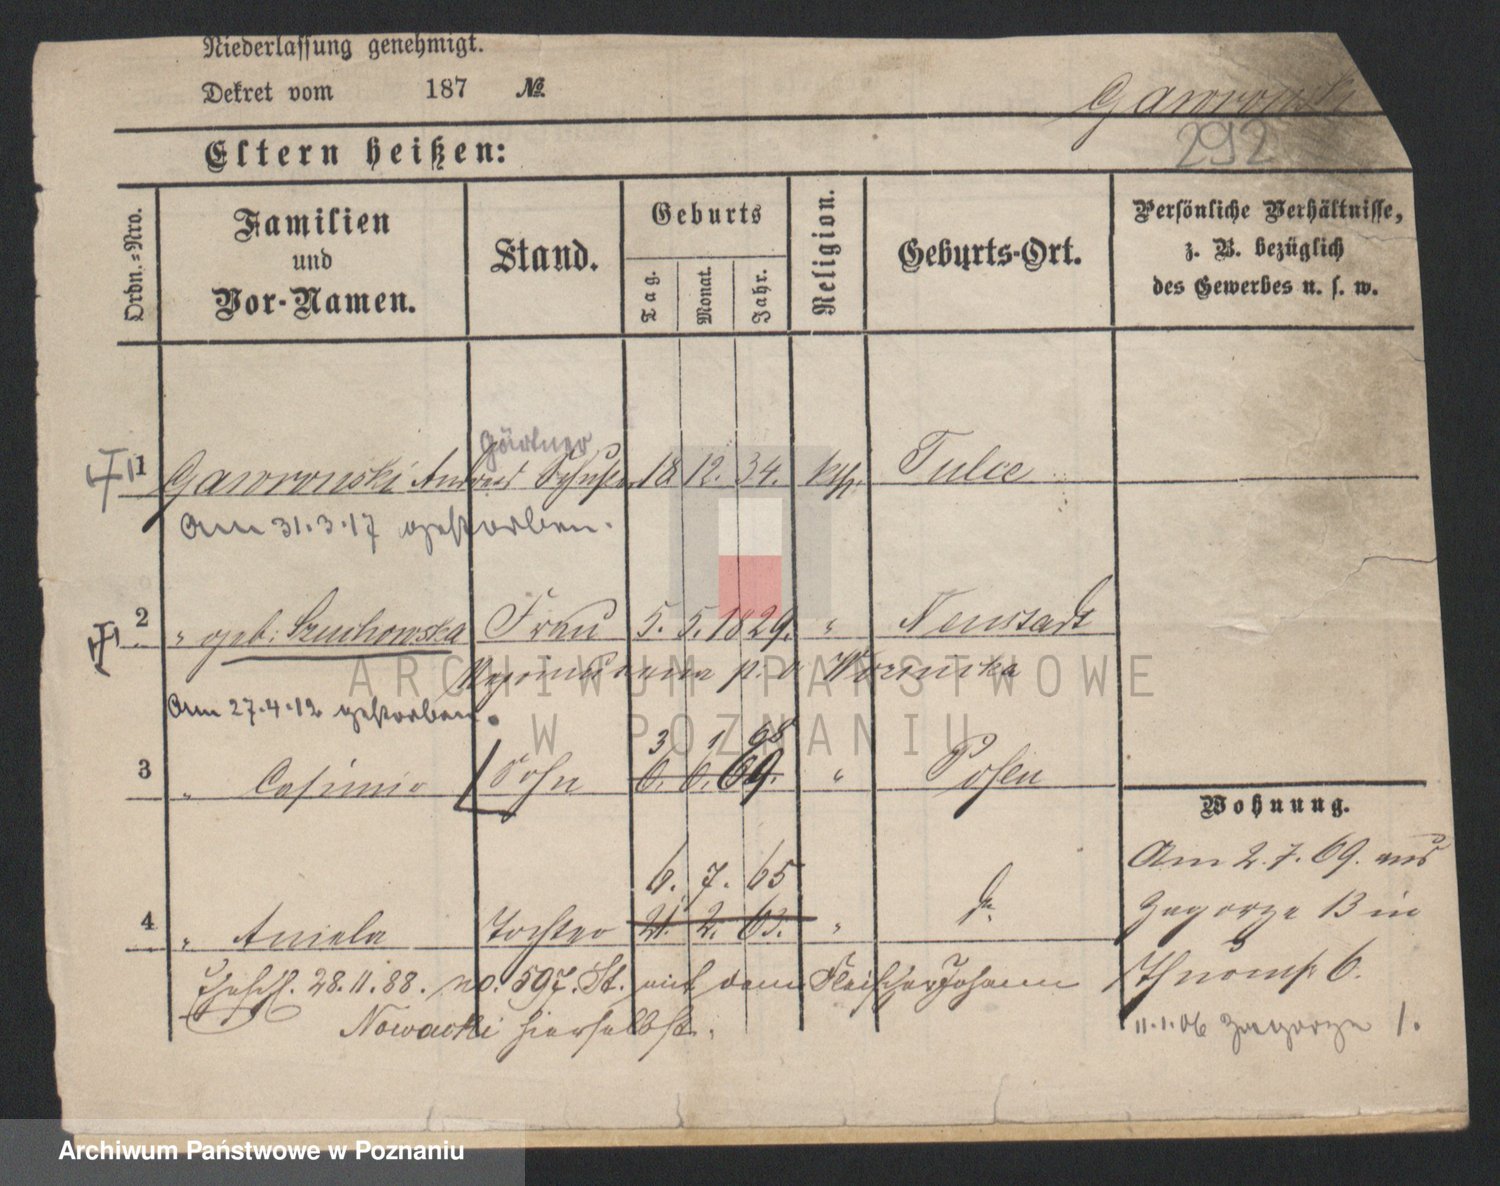 Niederlassung genehmigt.
Dekret vom 187 №
Gawronski
292
Eltern heißen:
Ordn.=Nro.
Familien
und
Vor-Namen.
Stand.
Geburts
Tag.
Monat.
Jahr.
Religion.
Geburts-Ort.
Persönliche Verhältnisse,
z. B. bezüglich
des Gewerbes u. s. w.
Gärtner
1 Gawronski Andreas 18 12. 34. kth. Tulce
Am 31.3.17 gestorben.
2 " geb: Szuchowska Frau 5. 5. 1829. " Neustadt
p. o
Am 27.4.12 gestorben.
3 1 68
3 " Casimir Sohn 6. 6. 69. " Posen
Wohnung.
Am 2.7.69. aus
6. 7. 65
Zagorze 13 in
4 " Aniela Tochter 21. 2. 63. " do
6.
Ehesch. 28.11.88. no. 597. St. mit dem Fleischer Johann
Nowacki hierselbst.
11.1.06 Zagorze 1.
ARCHIWUM PAŃSTWOWE
W POZNANIU
Archiwum Państwowe w Poznaniu